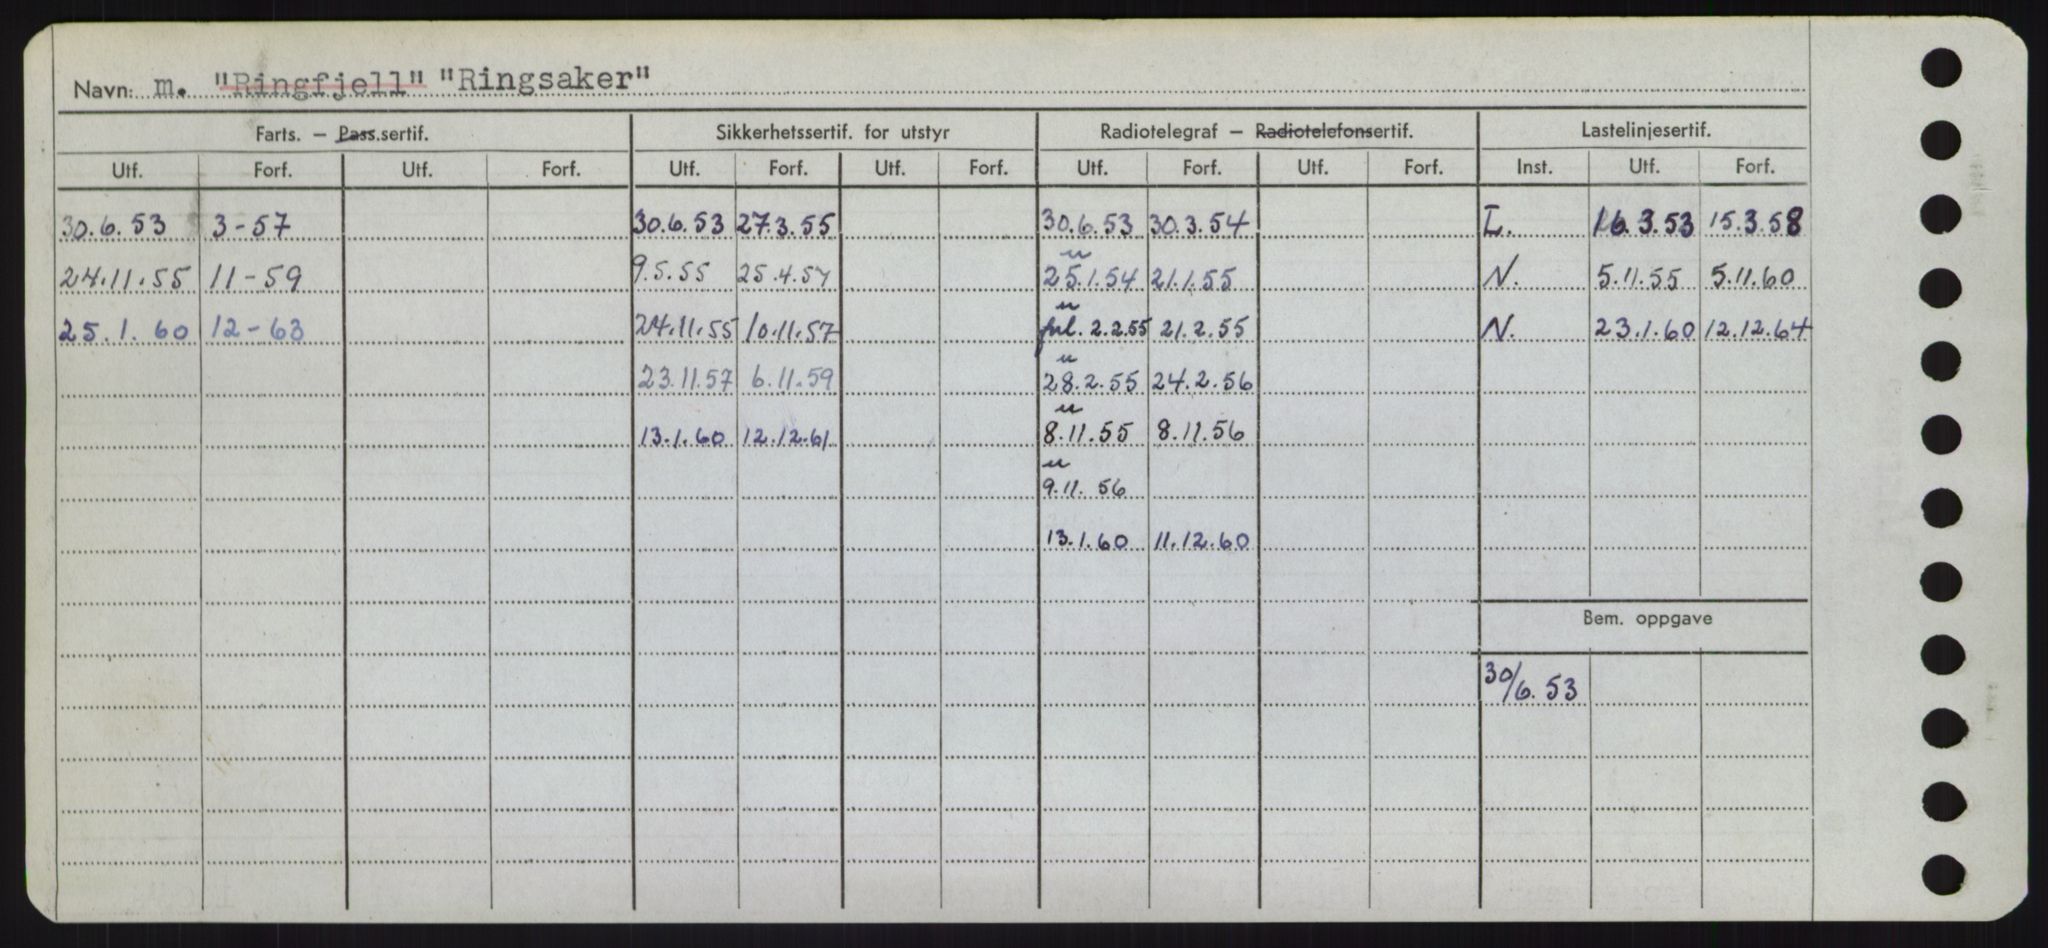 Navn: m. "Ringfjell" "Ringsaker"
Farts. – Pass.sertif. Sikkerhetssertif. for utstyr Radiotelegraf – Radiotelefonsertif. Lastelinjesertif.
Utf. Forf. Utf. Forf. Utf. Forf. Utf. Forf. Utf. Forf. Utf. Forf. Inst. Utf. Forf.
30.6.53 3-57 30.6.53 27.3.55 30.6.53 30.3.54 L. 16.3.53 15.3.58
u
24.11.55 11-59 9.5.55 25.4.57 25.1.54 21.1.55 N. 5.11.55 5.11.60
u
25.1.60 12-63 24.11.55 10.11.57 forl. 2.2.55 21.2.55 N. 23.1.60 12.12.64
u
23.11.57 6.11.59 28.2.55 24.2.56
u
13.1.60 12.12.61 8.11.55 8.11.56
u
9.11.56
13.1.60 11.12.60
Bem. oppgave
30/6.53